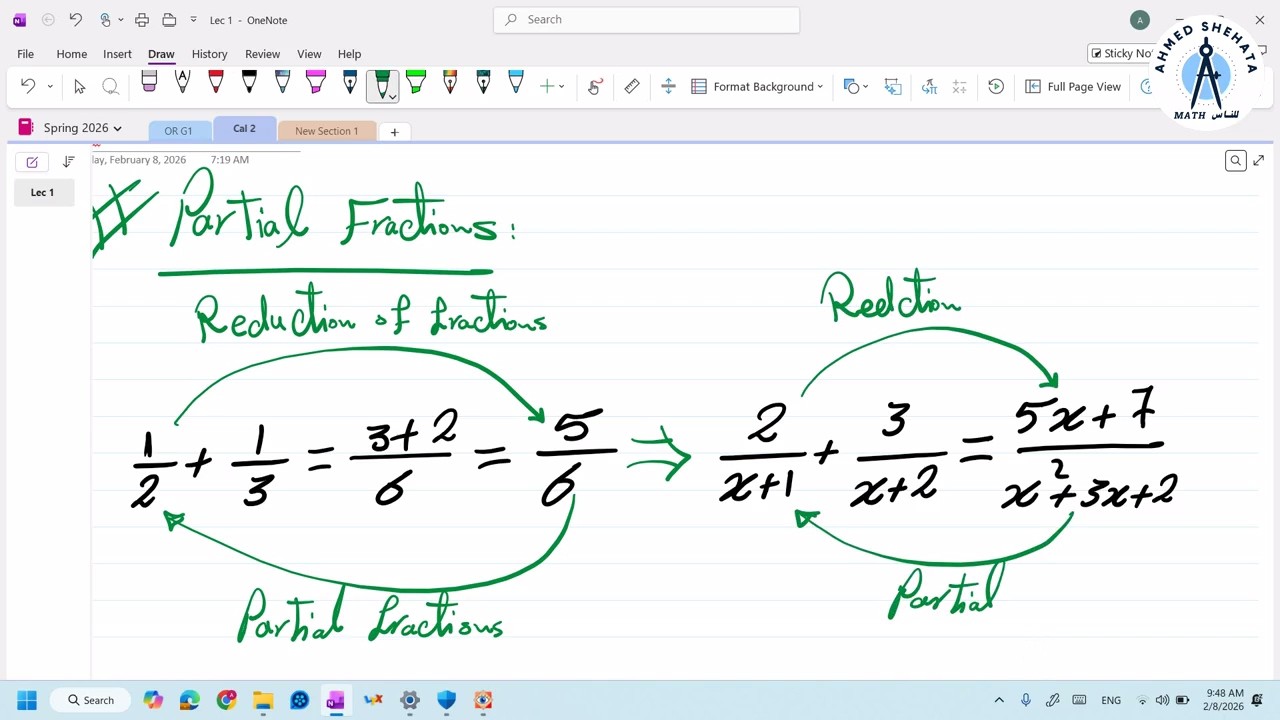 Lec 1 - OneNote
Search
A
AHMED SHEHATA
MATH للناس
File Home Insert Draw History Review View Help
Format Background
Full Page View
Spring 2026
OR G1
Cal 2
New Section 1
day, February 8, 2026 7:19 AM
Lec 1
# Partial Fractions:
Reduction of fractions
Reedction
1/2 + 1/3 = 3+2/6 = 5/6 ⇒ 2/x+1 + 3/x+2 = 5x+7/x²+3x+2
Partial fractions
Partial
Search
ENG
9:48 AM
2/8/2026